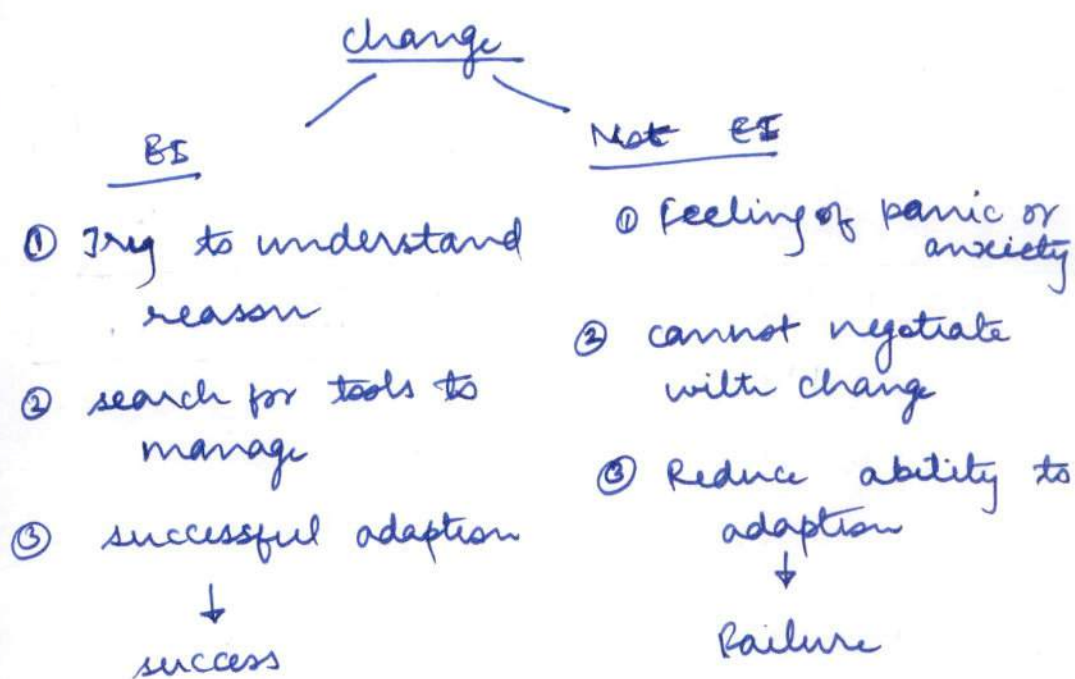 change
EI
① Try to understand
reason
② search for tools to
manage
③ successful adaption
↓
success
Not EI
① Feeling of panic or
anxiety
② cannot negotiate
with change
③ Reduce ability to
adaption
↓
Failure